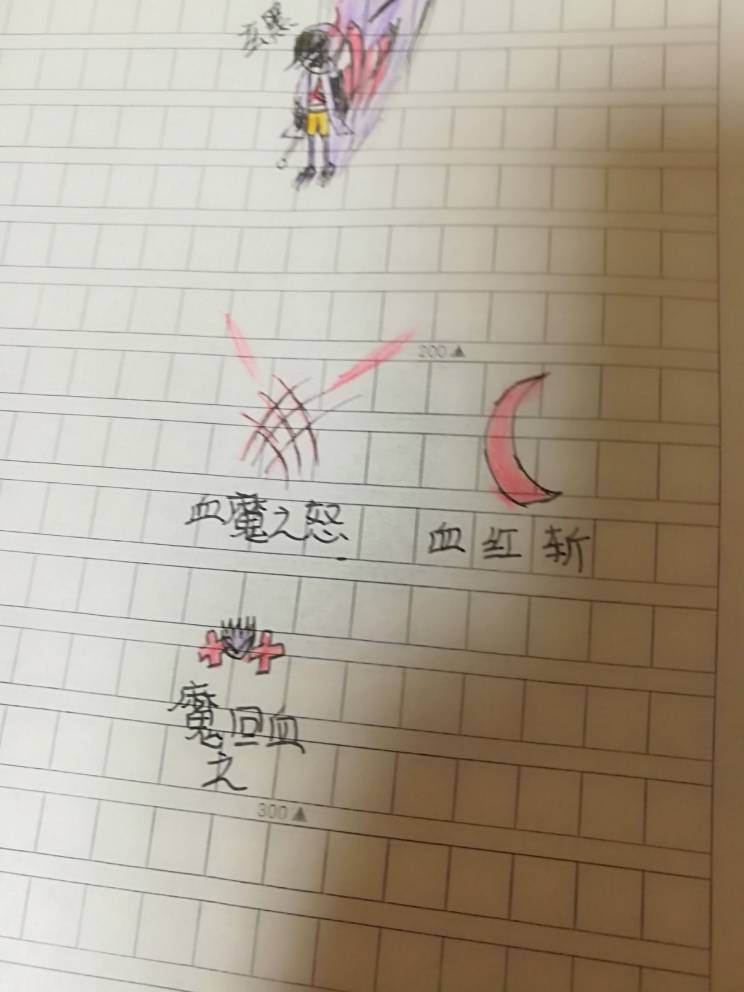 200▲
血魔之怒
血红斩
魔回血
之
300▲